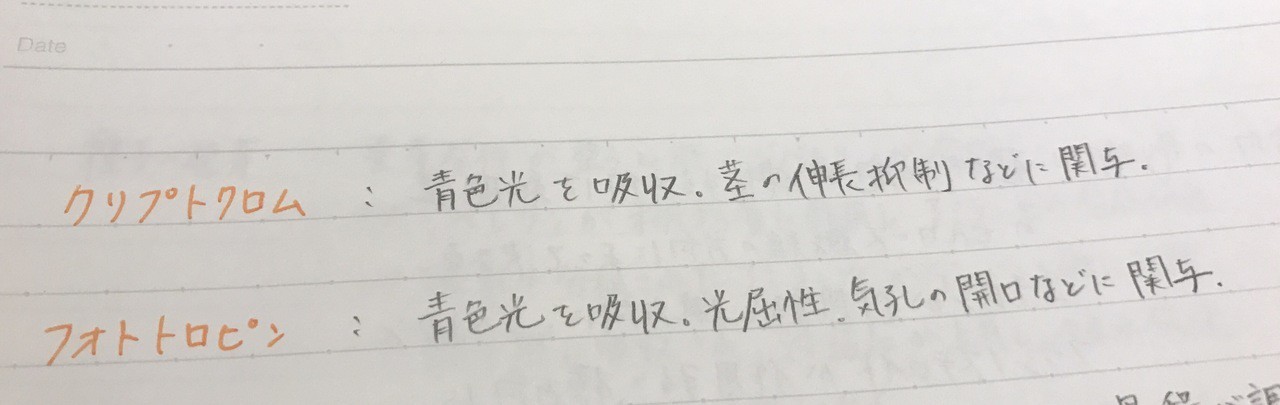 Date
クリプトクロム : 青色光を吸収. 茎の伸長抑制などに関与.
フォトトロピン : 青色光を吸収. 光屈性. 気孔の開口などに関与.